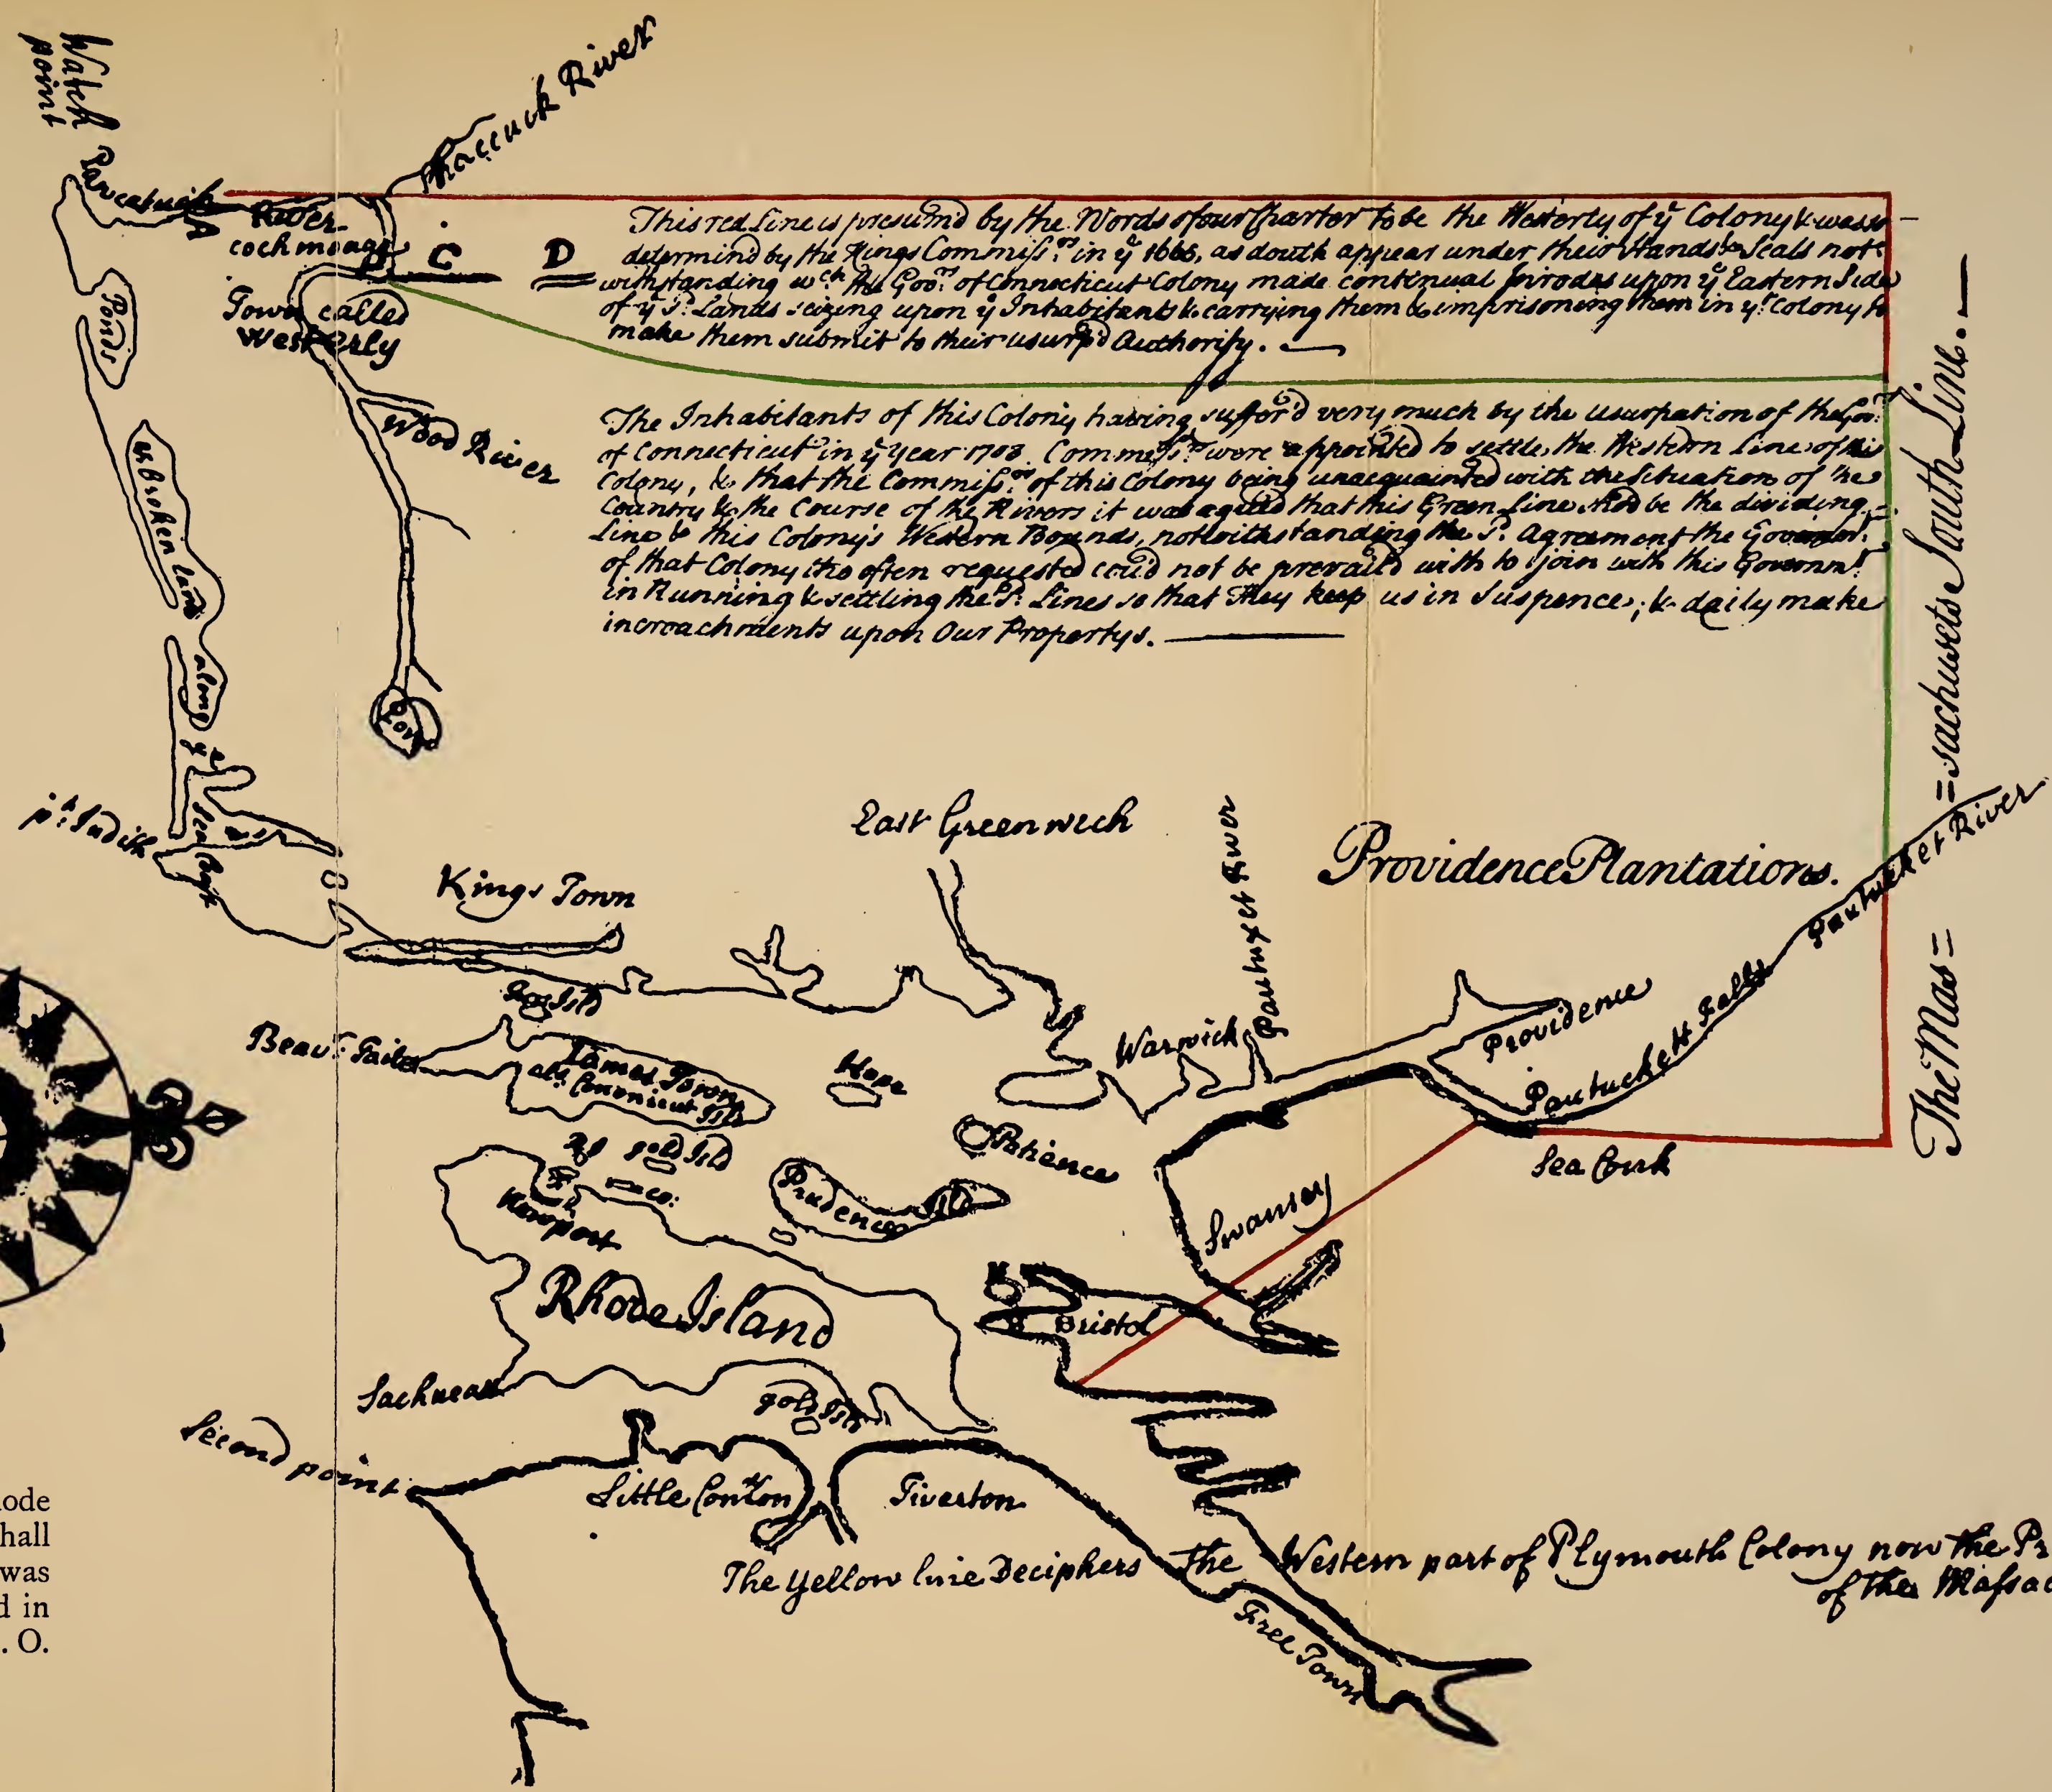 Watch
point
Shaccuck River
Pawcatuck
River
cochmoage
A
B
C
D
Town called
Westerly
Ponds
Wood River
Pond
This red Line is presum'd by the Words of our Charter to be the Westerly of yͤ Colony & was so
determin'd by the Kings Commisſ:ʳˢ in yͤ 1665, as douth appear under their Hands & Seals not=
withstanding wᶜʰ the Govʳ: of Connecticut Colony made continual Inrodes upon yͤ Eastern Side
of yͤ Sᵈ: Lands seizing upon yͤ Inhabitants & carrying them & imprisoning them in yʳ Colony to
make them submit to their usurp'd Authority.
The Inhabitants of this Colony having suffer'd very much by the usurpation of the Govʳ:
of Connecticut in yͤ year 1703. Commesſʳˢ: were appointed to settle the Western Line of this
Colony, & that the Commisſ:ʳˢ of this Colony being unacquainted with the Situation of the
Country & the Course of the Rivers it was agreed that this Green Line shod be the dividing
Line & this Colony's Western Bounds, notwithstanding the Sᵈ: Agreement the Governmᵗ:
of that Colony tho often requested cou'd not be prevail'd with to join with this Governmᵗ:
in Running & settling the Sᵈ: Lines so that They keep us in Suspence; & daily make
incroachments upon Our Propertys.
The Mas=
=sachusets South Line.
a broken land
along
yͤ
Sea Coast
pᵗ: Judith
Kings Town
East Greenwich
Pautuxet River
Providence Plantations.
Pautucket River
Providence
Pautuckett Falls
Warwick
Sea Conk
Beavʳ: Taile
James Town
Cononicut Isld
Hope
Patience
gold Isld
Prudence Isld
Newport
Swansey
Bristol
Rhode Island
Sachueast
gold Isld
Second point
Little Compton
Tiverton
The Yellow line Deciphers the Western part of Plymouth Colony now the Pr
of the Maſsac
Free Town
ode
hall
was
d in
. O.